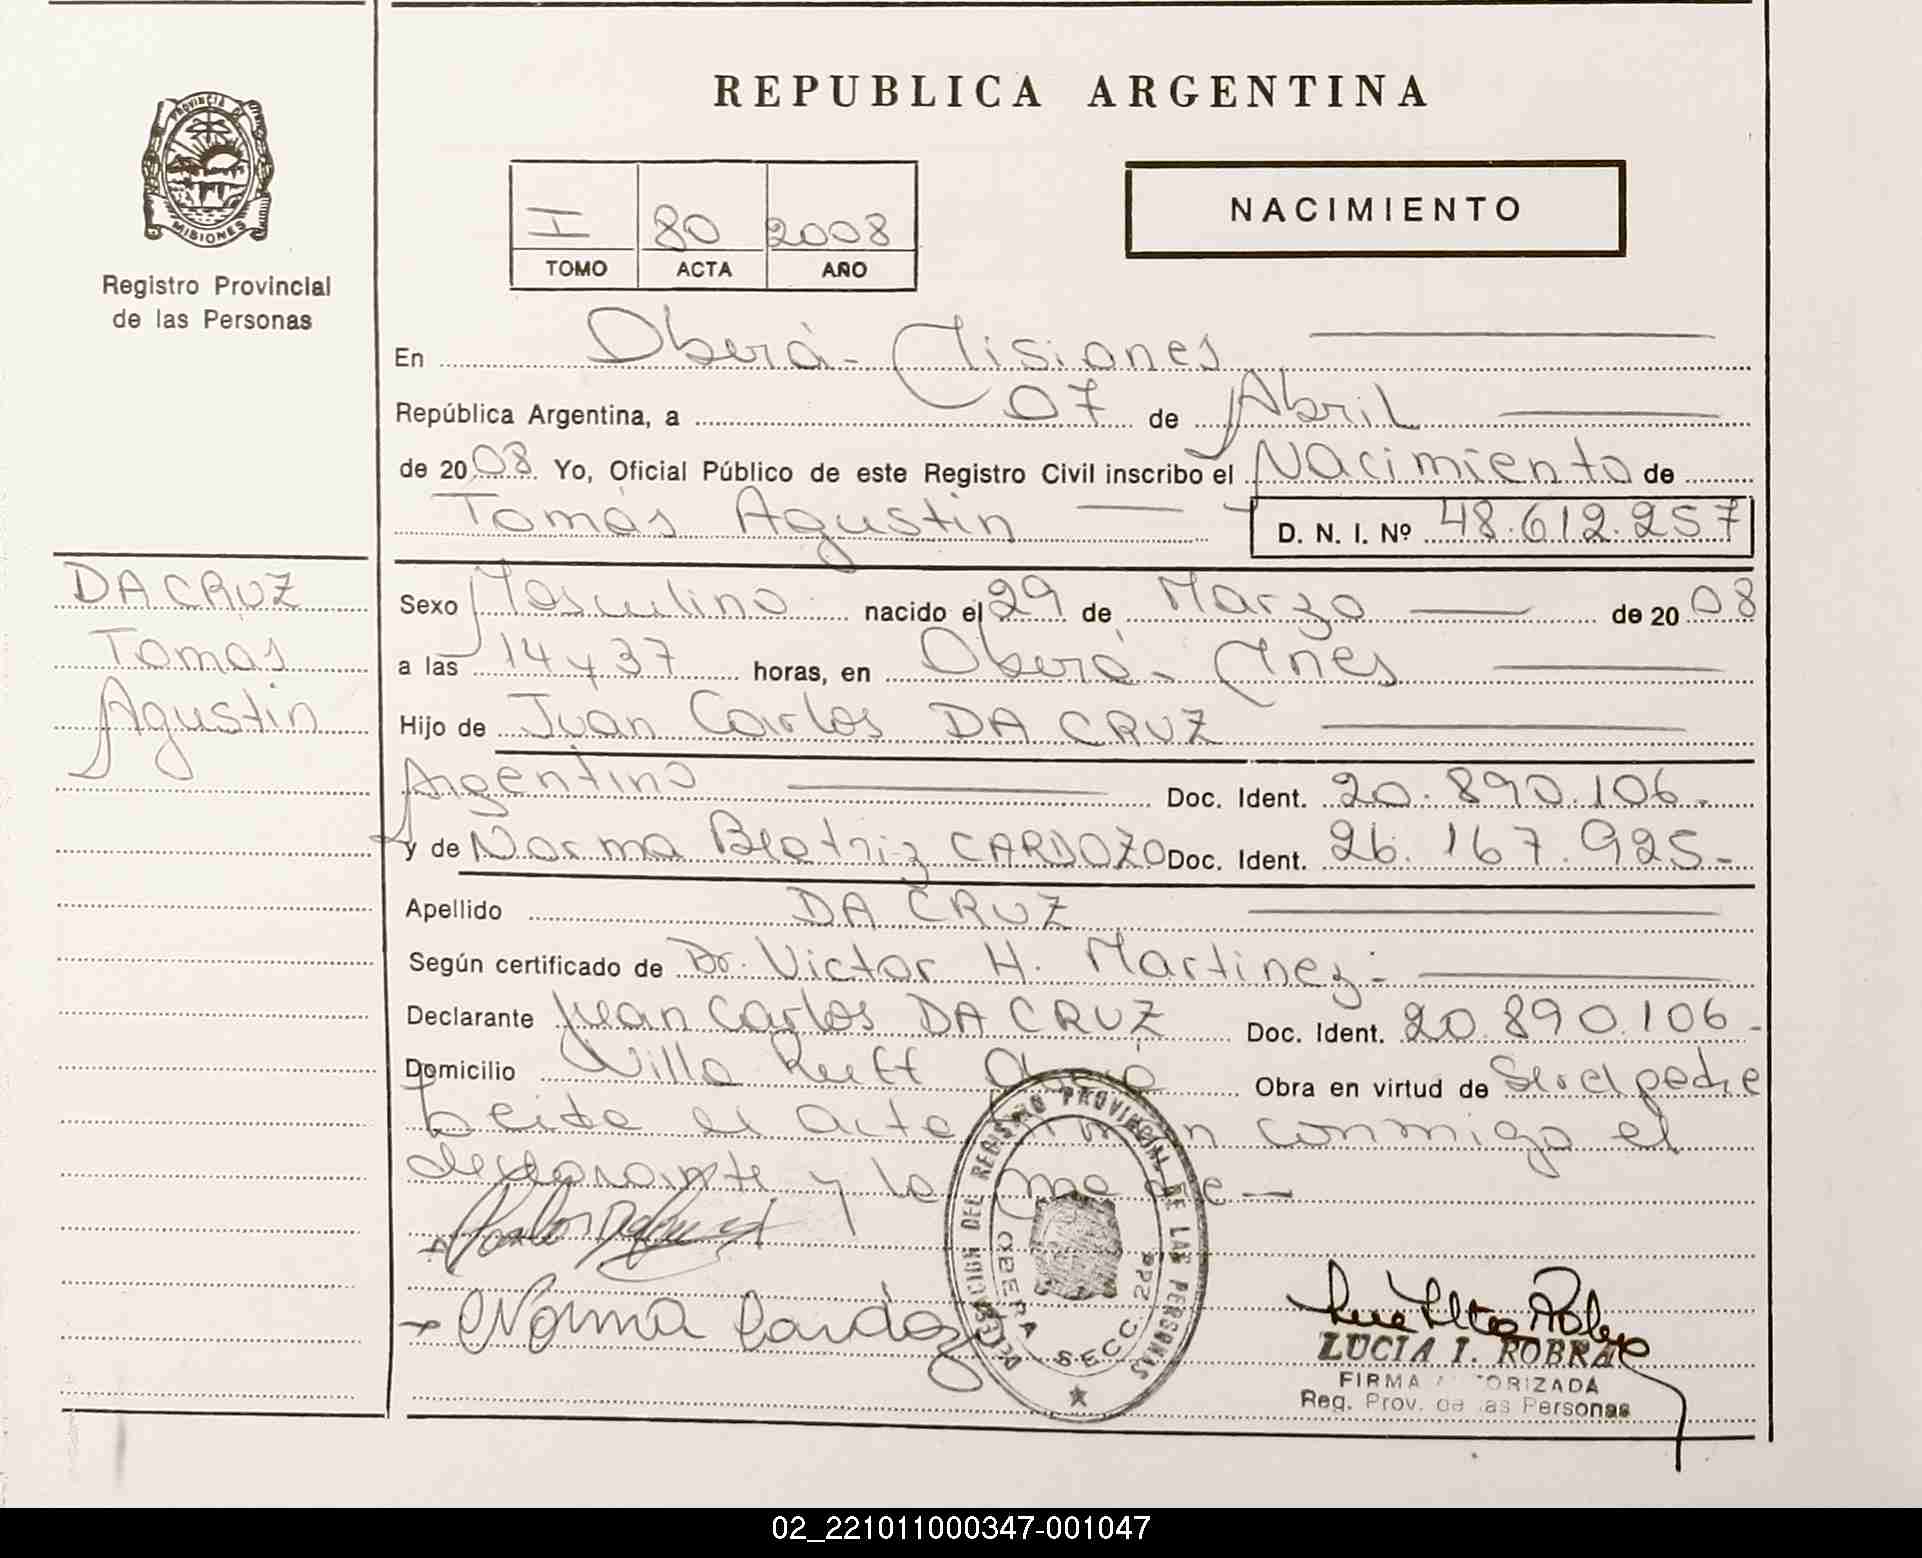 PROVINCIA DE MISIONES
Registro Provincial
de las Personas
REPUBLICA ARGENTINA
I 80 2008
TOMO ACTA AÑO
NACIMIENTO
En Oberá - Misiones
República Argentina, a 07 de Abril
de 2008 Yo, Oficial Público de este Registro Civil inscribo el Nacimiento de
Tomás Agustin D. N. I. Nº 48.612.257
DA CRUZ
Tomás
Agustin
Sexo Masculino nacido el 29 de Marzo de 2008
a las 14 y 37 horas, en Oberá - Mnes
Hijo de Juan Carlos DA CRUZ
Argentino Doc. Ident. 20.890.106.
y de Norma Beatriz CARDOZO Doc. Ident. 26.167.925-
Apellido DA CRUZ
Según certificado de Dr. Victor H. Martinez -
Declarante Juan Carlos DA CRUZ Doc. Ident. 20.890.106-
Domicilio Villa Ruff Oberá Obra en virtud de Ser el padre
Leida el acta firman conmigo el
declarante y la madre -
Norma Cardozo
DELEGACION DEL REGISTRO PROVINCIAL DE LAS PERSONAS
OBERA SECC. 2ª
LUCIA I. ROBRA
FIRMA AUTORIZADA
Reg. Prov. de las Personas
02_221011000347-001047